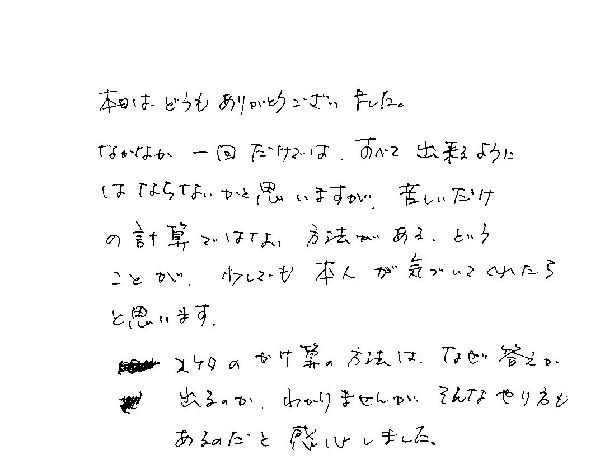 本日は どうも ありがとうございました。
なかなか 一回 だけでは、すべて 出来るように
は ならないかと思いますが、苦しいだけ
の 計算ではない 方法がある、という
ことが、少しでも 本人 が 気づいてくれたら
と思います。
メケタの かけ算の 方法は、なぜ 答えが
出るのか、わかりませんが、そんな やり方も
あるのだと 感心しました。